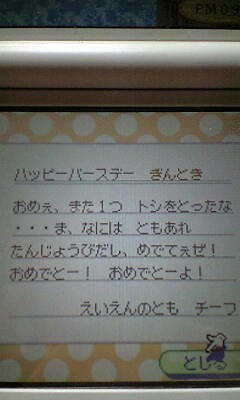 PM 09
ハッピーバースデー　ぎんとき
おめぇ、また１つ　トシをとったな
・・・ま、なには　ともあれ
たんじょうびだし、めでてぇぜ！
おめでとー！　おめでとーよ！
えいえんのとも　チーフ
とじる